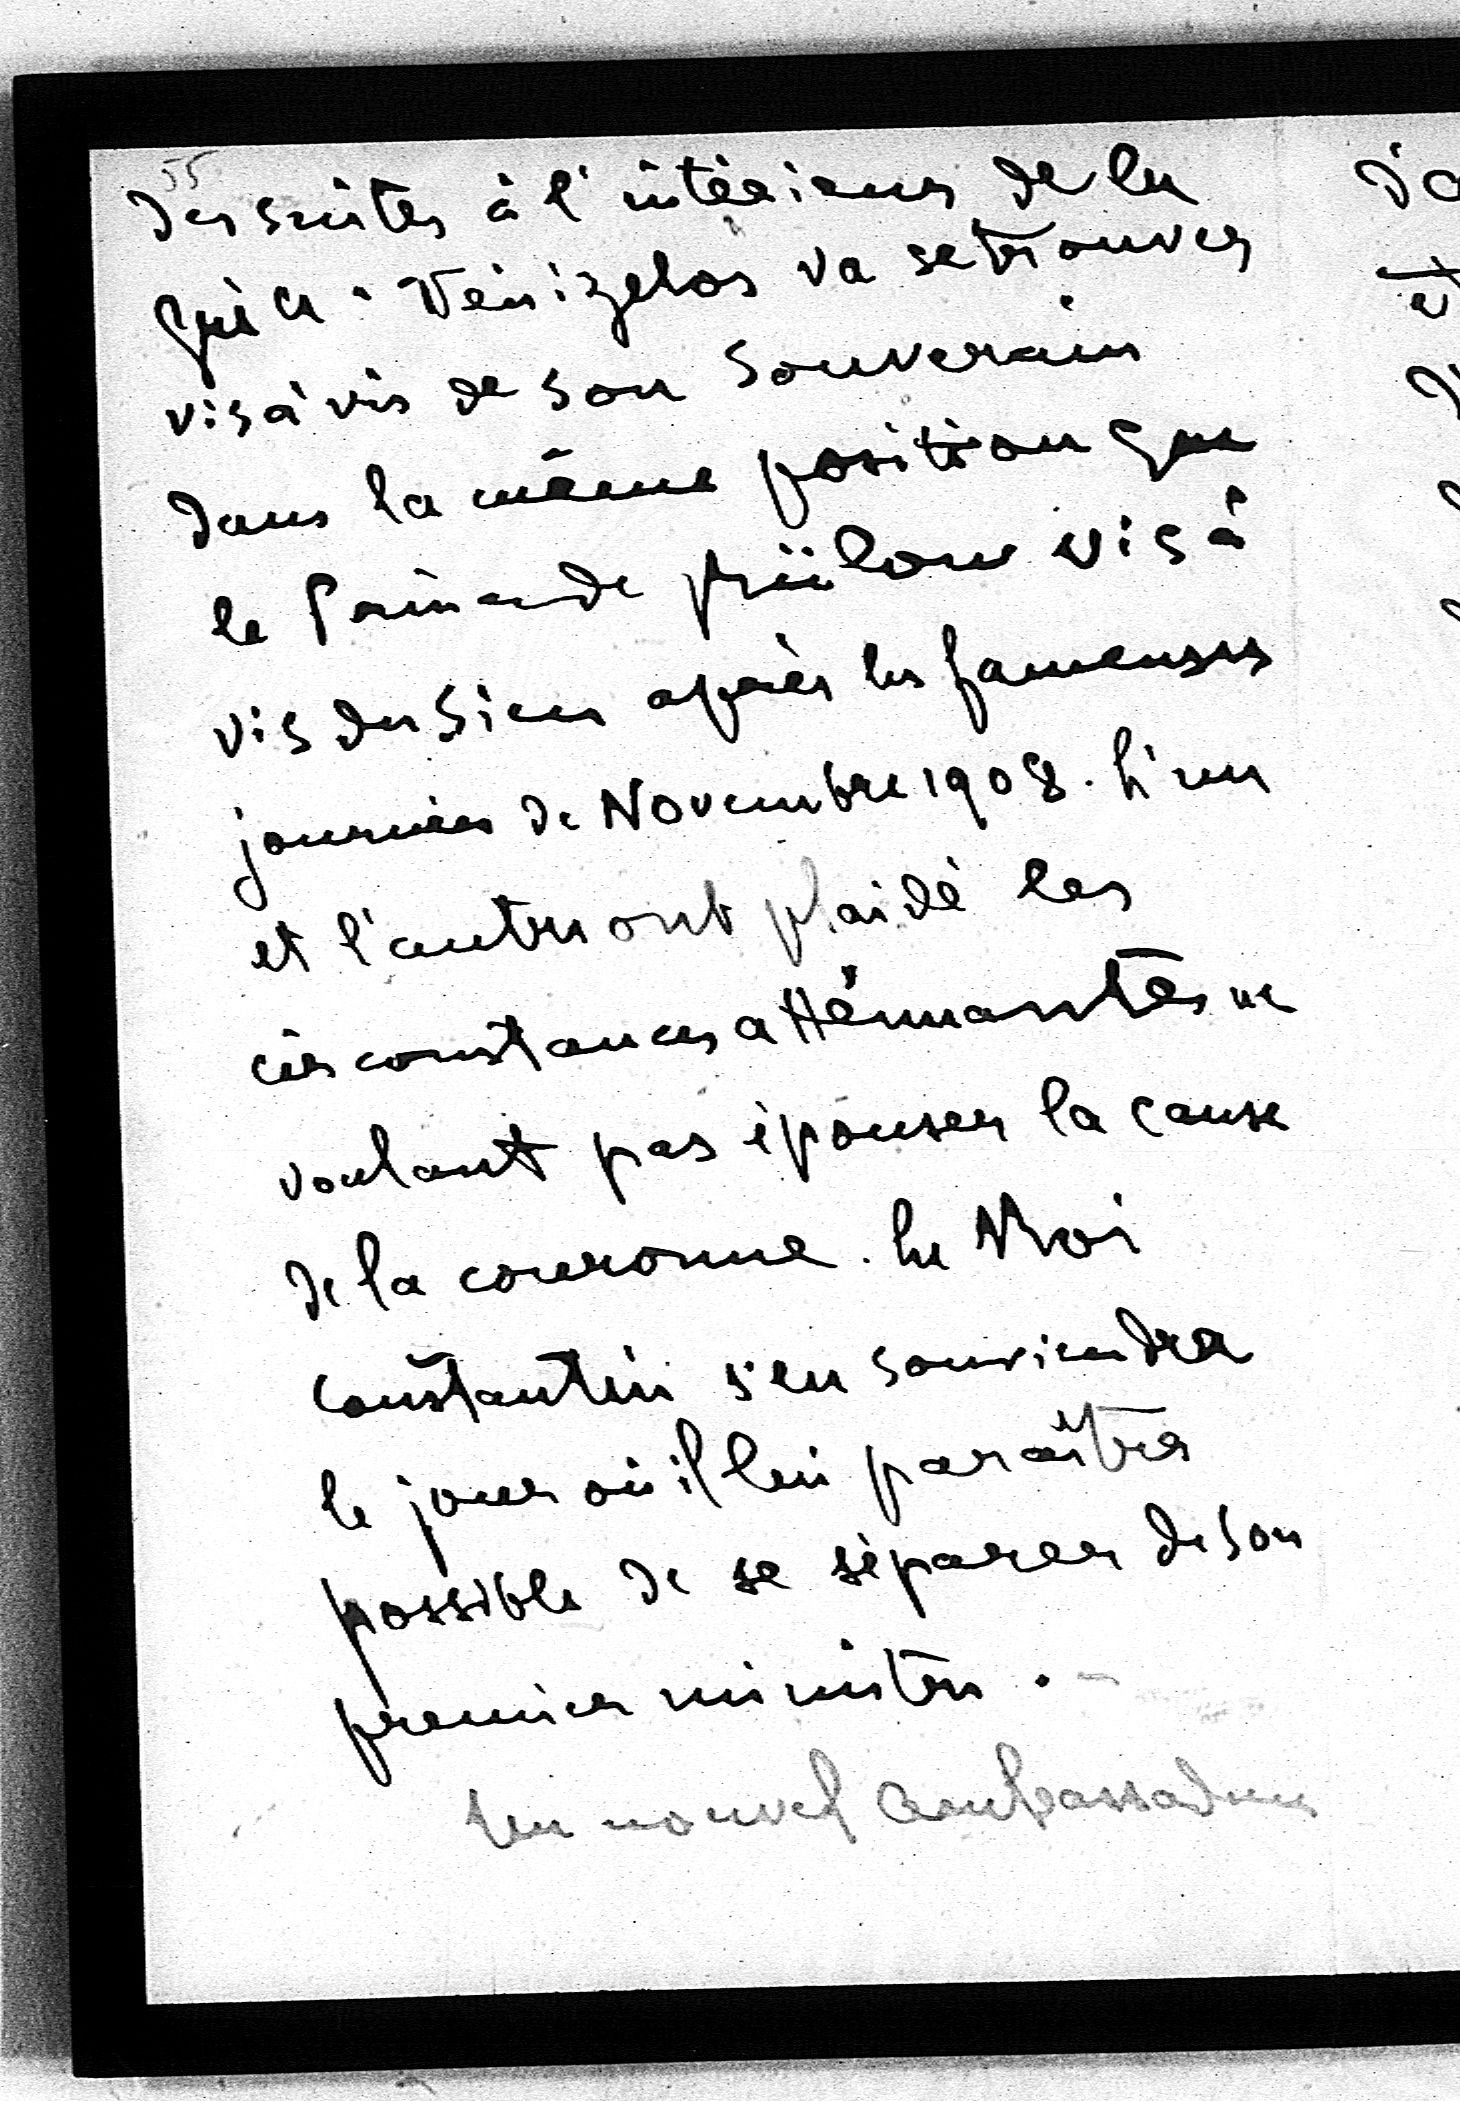 55
des suites à l'intérieur de la
Grèce. Vénizelos va se trouver
vis à vis de son Souverain
dans la même position que
le Prince de Bülow vis à
vis du Sien après les fameuses
journées de Novembre 1908. L'un
et l'autre ont plaidé les
circonstances atténuantes ne
voulant pas épouser la cause
de la couronne. Le Roi
Constantin s'en souviendra
le jour où il lui paraîtra
possible de se séparer de son
premier ministre.
Un nouvel Ambassadeur